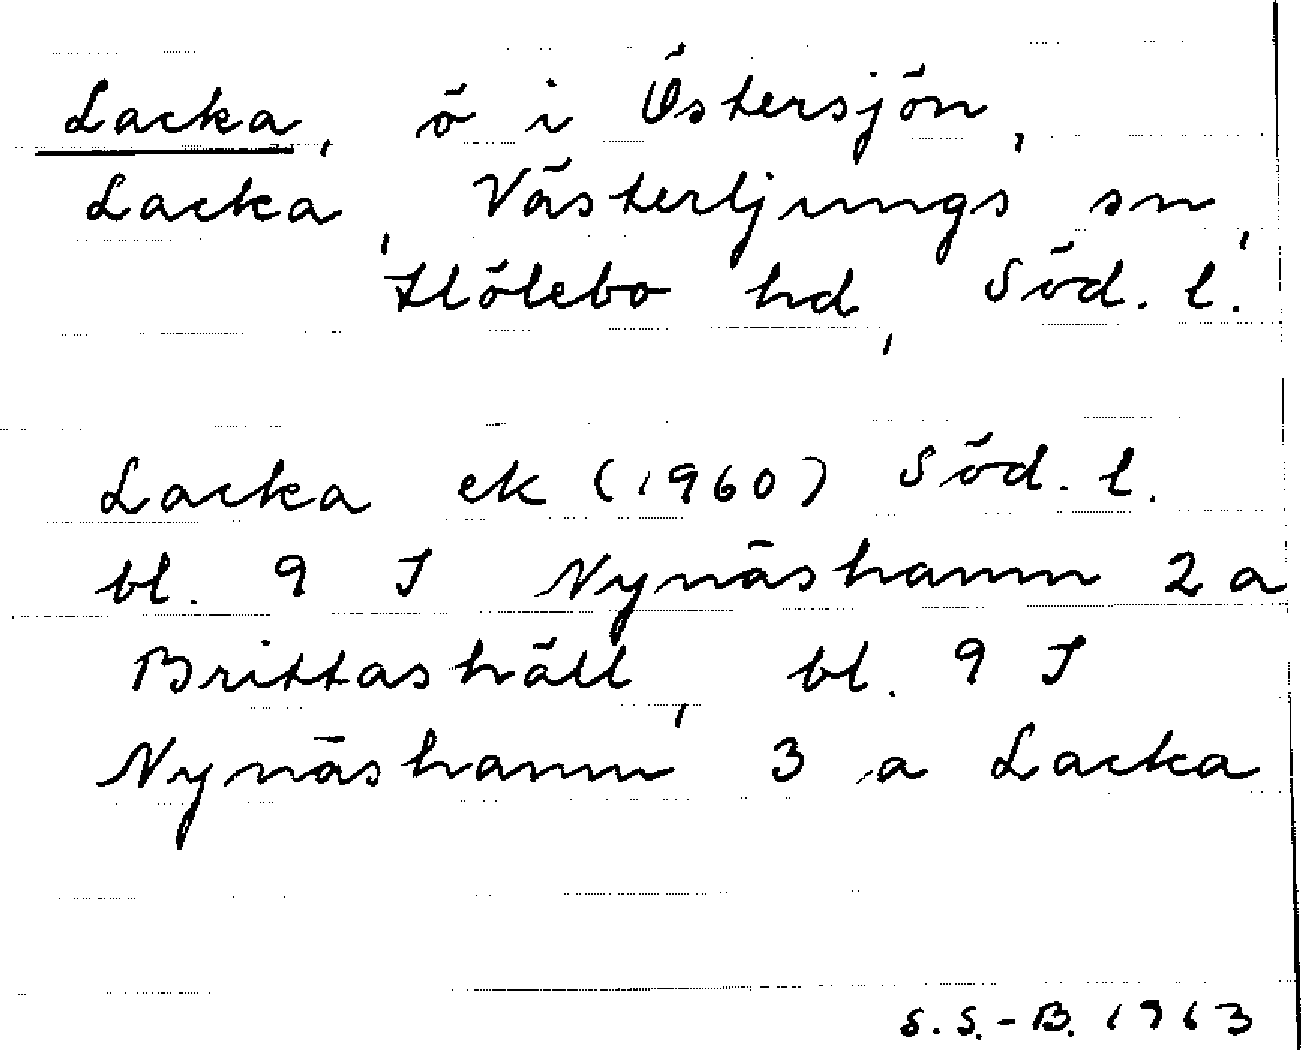 Lacka, ö i Östersjön,
Lacka, Västerljungs sn,
Hölebo hd, Söd. l.
Lacka ek (1960) Söd. l.
bl. 9 I Nynäshamn 2 a
Brittashäll, bl. 9 I
Nynäshamn 3 a Lacka
S.S.-B. 1963